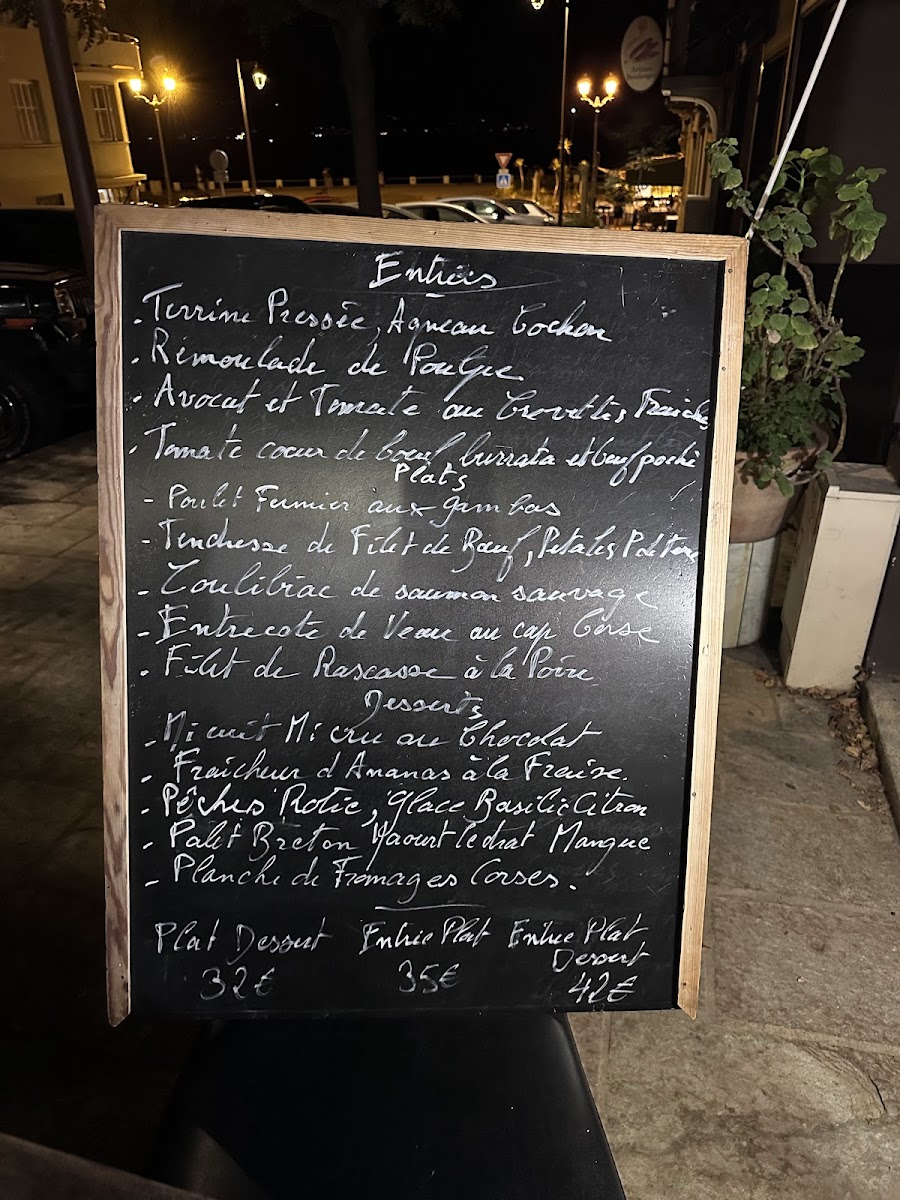 Entrées
. Terrine Pressée, Agneau Cochon
. Rémoulade de Poulpe
. Avocat et Tomate au Crevettes Fraiche
. Tomate coeur de boeuf burrata et oeuf poché
Plats
- Poulet Fermier aux gambas
- Tendresse de Filet de Bœuf, Petales P de terre
- Coulibiac de saumon sauvage
- Entrecote de Veau au cap Corse
- Filet de Rascasse à la Poire
Desserts
- Mi cuit Mi cru au Chocolat
- Fraicheur d'Ananas à la Fraise.
- Pêches Rotie, glace Basilic Citron
- Palet Breton Yaourt Cedrat Mangue
- Planche de Fromages Corses.
Plat Dessert Entrée Plat Entrée Plat
Dessert
32€ 35€ 42€